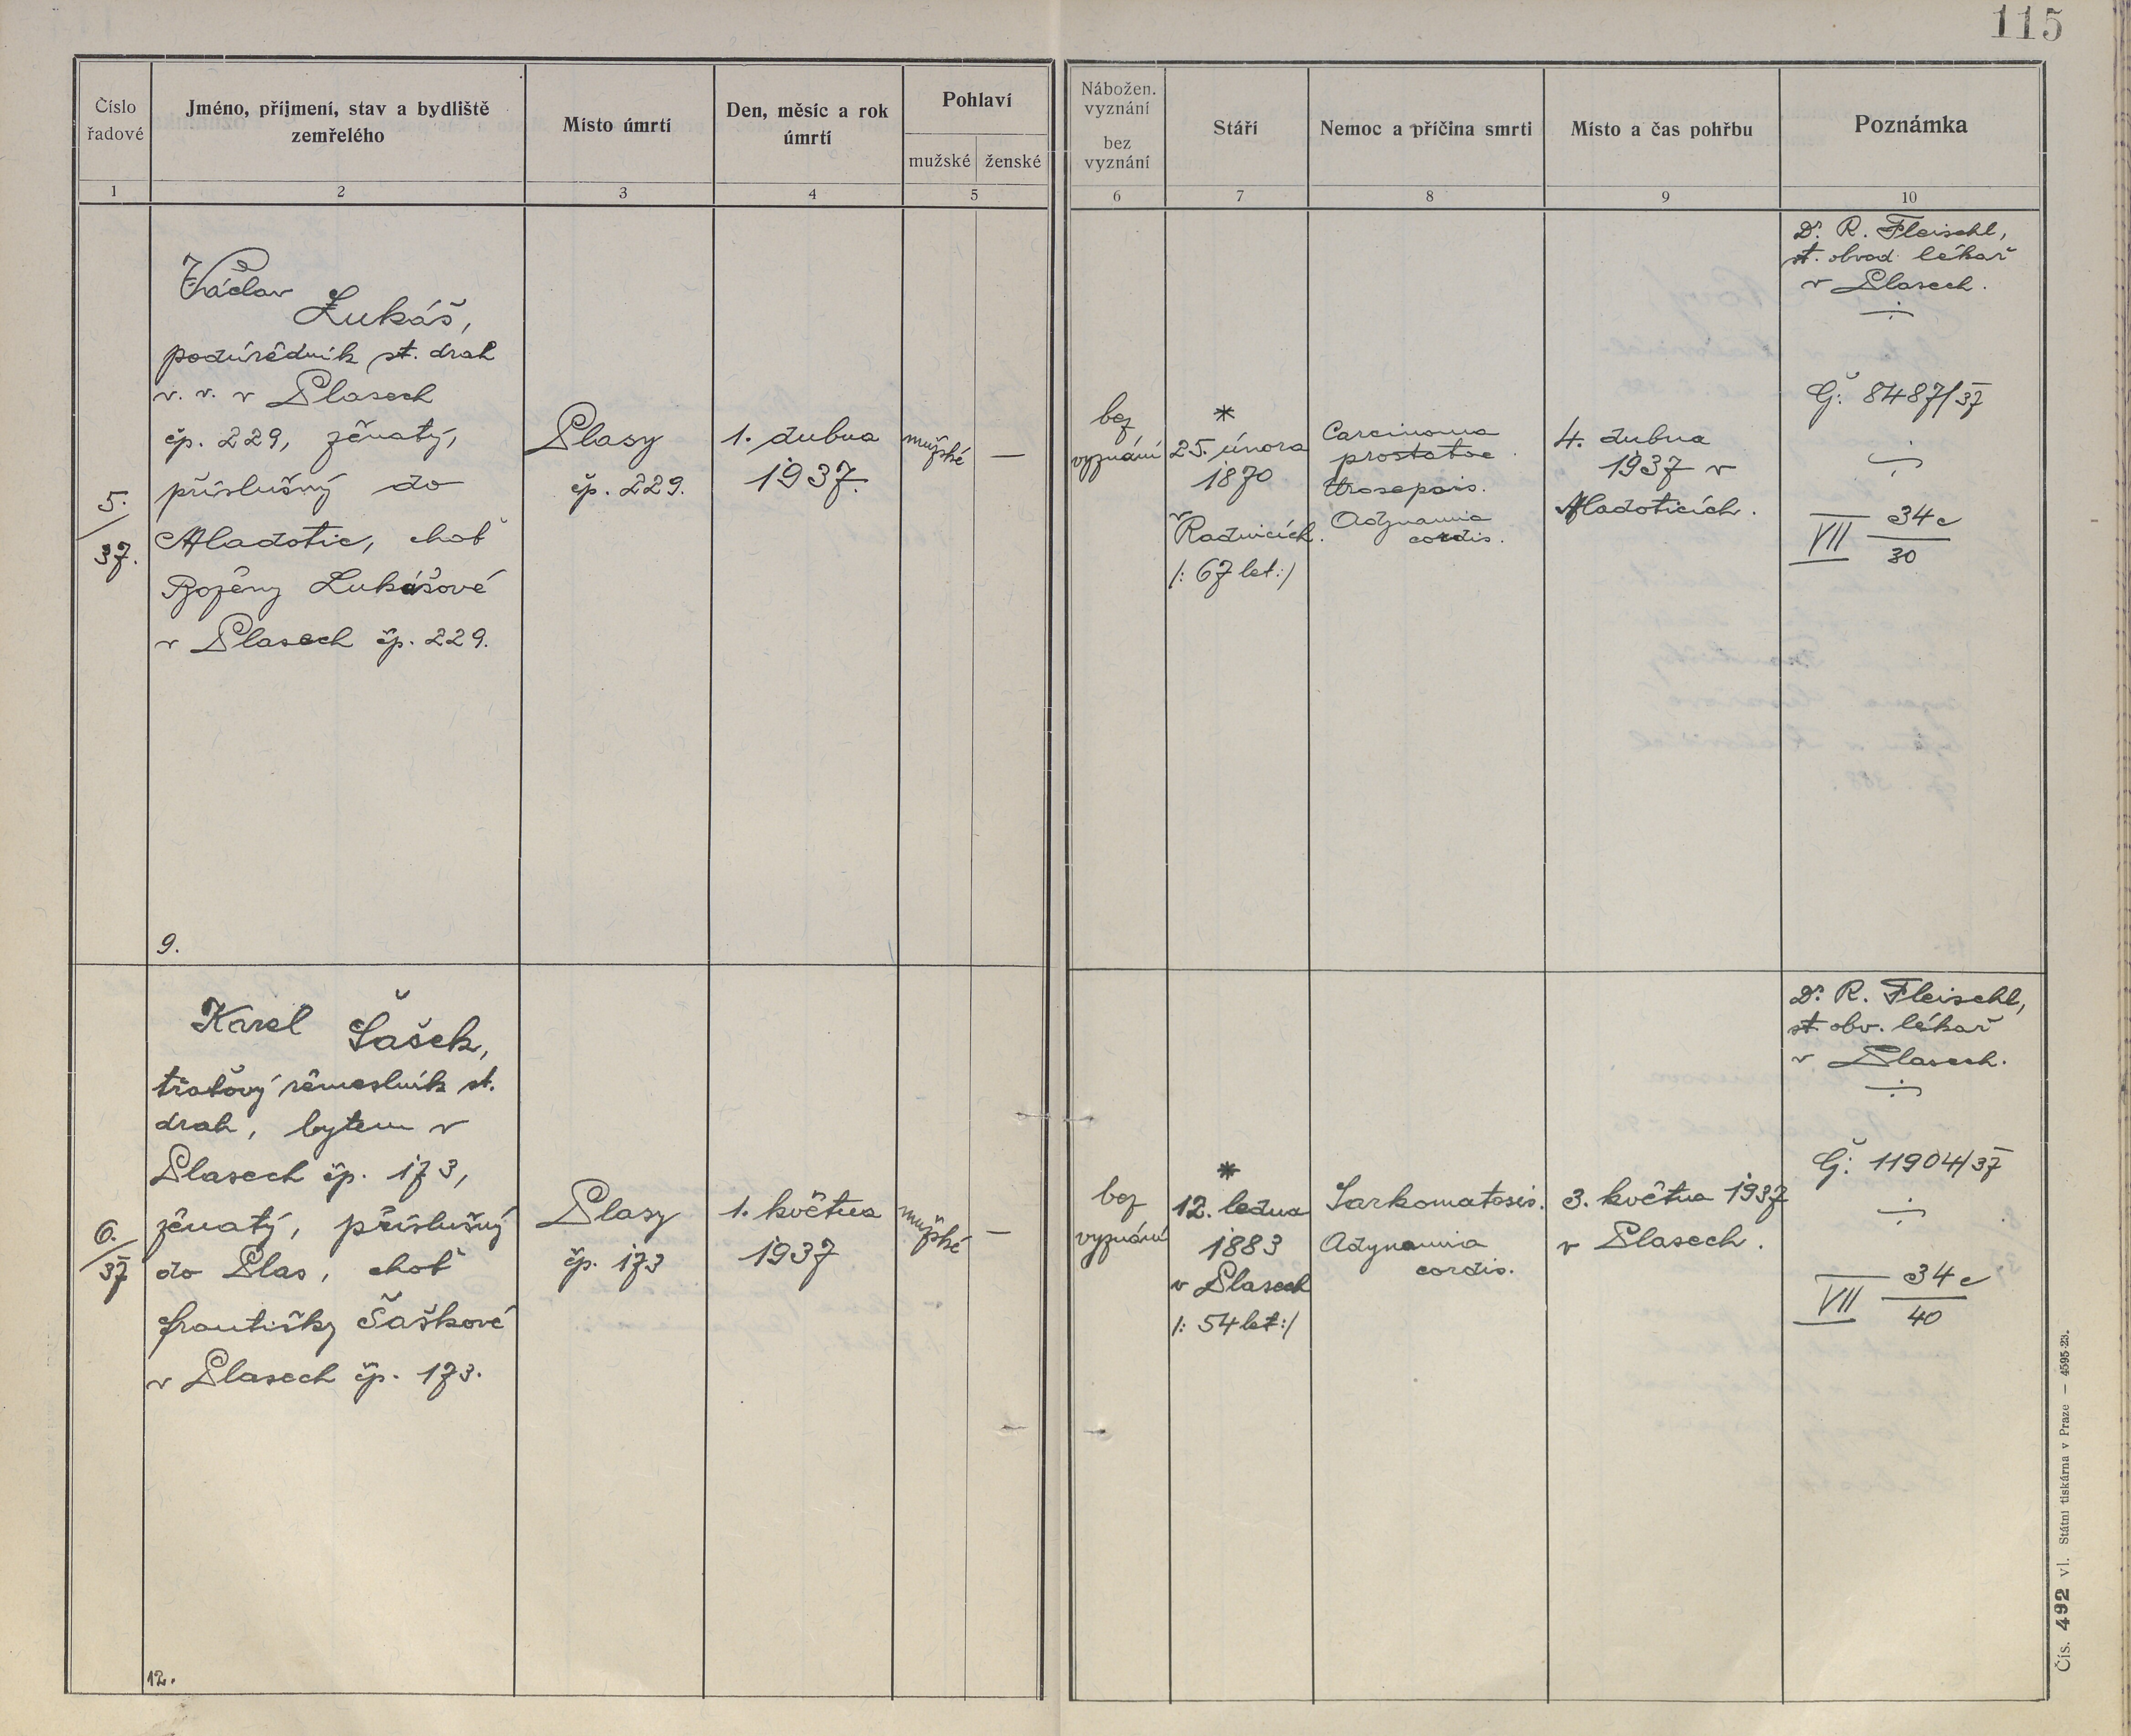 115
Číslo
řadové
Jméno, příjmení, stav a bydliště
zemřelého
Místo úmrtí
Den, měsíc a rok
úmrtí
Pohlaví
mužské
ženské
Nábožen.
vyznání
bez
vyznání
Stáří
Nemoc a příčina smrti
Místo a čas pohřbu
Poznámka
1
2
3
4
5
6
7
8
9
10
5.
37.
Václav
Lukáš,
podúředník st. drah
v. v. v Plasech
čp. 229, ženatý,
příslušný do
Mladotic, choť
Boženy Lukášové
v Plasech čp. 229.
9.
Plasy
čp. 229.
1. dubna
1937.
mužské
—
bez
vyznání
*
25. února
1870
v
Radnicích.
/: 67 let :/
Carcinoma
prostatae.
Urosepsis.
Adynamia
cordis.
4. dubna
1937 v
Mladoticích.
Dr. R. Fleischl,
st. obvod. lékař
v Plasech.
Č: 8487/37
VII 34c
30
6.
37
Karel
Šašek,
traťový řemeslník st.
drah, bytem v
Plasech čp. 173,
ženatý, příslušný
do Plas, choť
Františky Šaškové
v Plasech čp. 173.
12.
Plasy
čp. 173
1. května
1937
mužské
—
bez
vyznání
*
12. ledna
1883
v Plasech
/: 54 let :/
Sarkomatosis.
Adynamia
cordis.
3. května 1937
v Plasech.
Dr. R. Fleischl,
st. obv. lékař
v Plasech.
Č: 11904/37
VII 34c
40
Čís. 492 vl. Státní tiskárna v Praze — 4595-23.